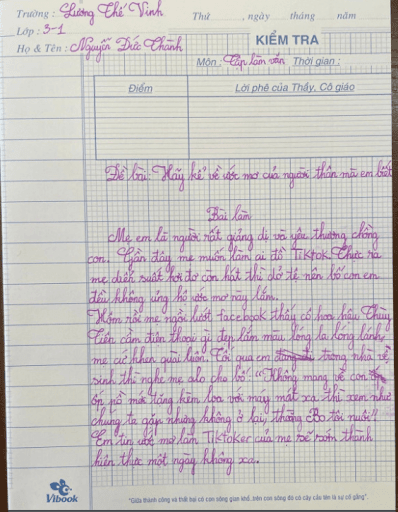 Trường : Lương Thế Vinh
Thứ , ngày tháng năm
Lớp : 3-1
KIỂM TRA
Họ & Tên : Nguyễn Đức Thành
Môn : Tập làm văn Thời gian :
Điểm
Lời phê của Thầy, Cô giáo
Đề bài: Hãy kể về ước mơ của người thân mà em biết
Bài làm
Mẹ em là người rất giảng dị và yêu thương chồng
con. Gần đây mẹ muốn làm cái đồ TikTok. Thực ra
mẹ diễn suất hơi dơ còn hát thì dở tệ nên bố con em
đều không ủng hộ ước mơ này lắm.
Hôm rồi mẹ ngồi lướt facebook thấy cô hoa hậu Thùy
Tiên cầm điện thoại gì đẹp lắm màu lóng la lóng lánh,
mẹ cứ khen quài luôn. Tối qua em trong nhà vệ
sinh thì nghe mẹ alo cho bố: "Không mang về con
ốp nà mới tăng kèm loa với máy mát xa thì xem như
chúng ta gặp nhưng không ở lại, thằng Bo tôi nuôi!!
Em tin ước mơ làm TikToker của mẹ sẽ sớm thành
hiện thực một ngày không xa.
Vibook
"Giữa thành công và thất bại có con sông gian khổ, trên con sông đó có cây cầu tên là sự cố gắng".